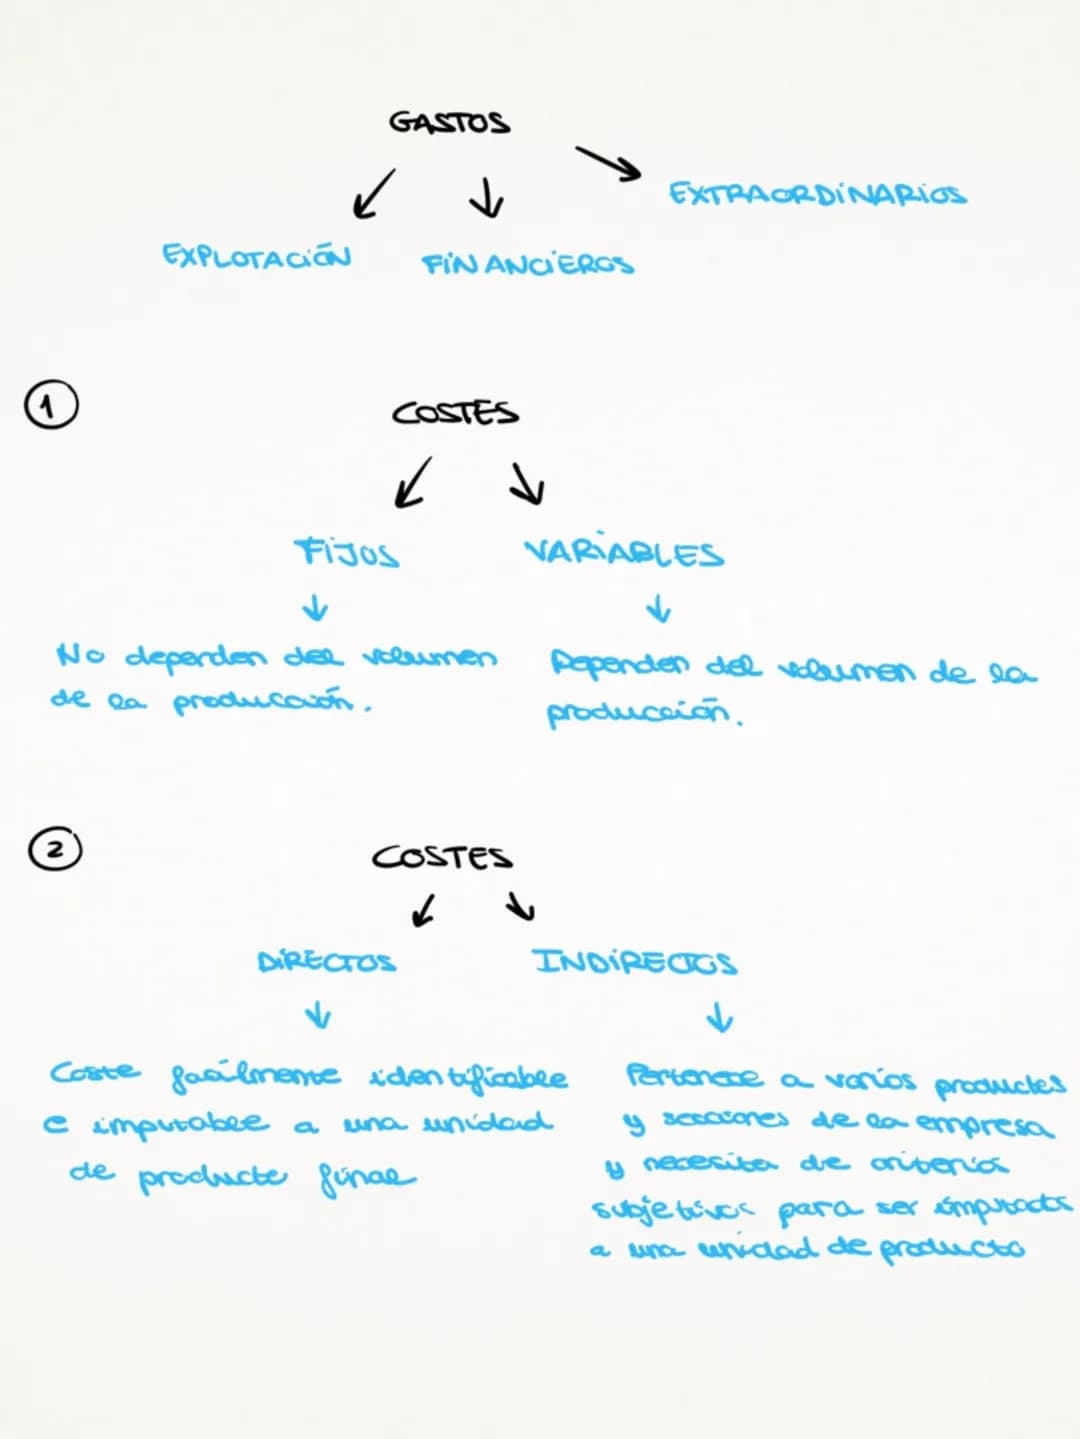 GASTOS
EXTRAORDINARIOS
EXPLOTACIÓN
FINANCIEROS
1
COSTES
FIJOS
VARIABLES
No dependen del volumen
de la producción.
Dependen del volumen de la
producción.
2
COSTES
DIRECTOS
INDIRECTOS
Coste facilmente identificable
e imputable a una unidad
de producto final
Pertenece a varios productos
y secciones de la empresa
y necesita de criterios
subjetivos para ser imputados
a una unidad de producto